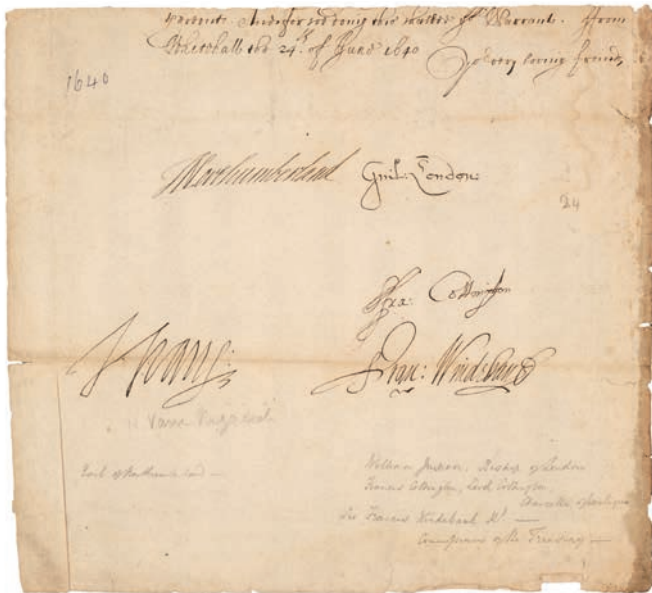 warrant. And for so doing this shalbe yor Warrant. From
Whitehall the 24th. of June 1640
Yor very loving frends,
1640
Northumberland Guil: London:
24
Fra: Cottington
H Vane: Fran: Windebank
H Vane
Earl of Northumberland —
William Juxon, Bishop of London
Francis Cottington, Lord Cottington,
Chancellor of Exchequer
Sir Francis Windebank Kt. —
Commissioners of the Treasury —